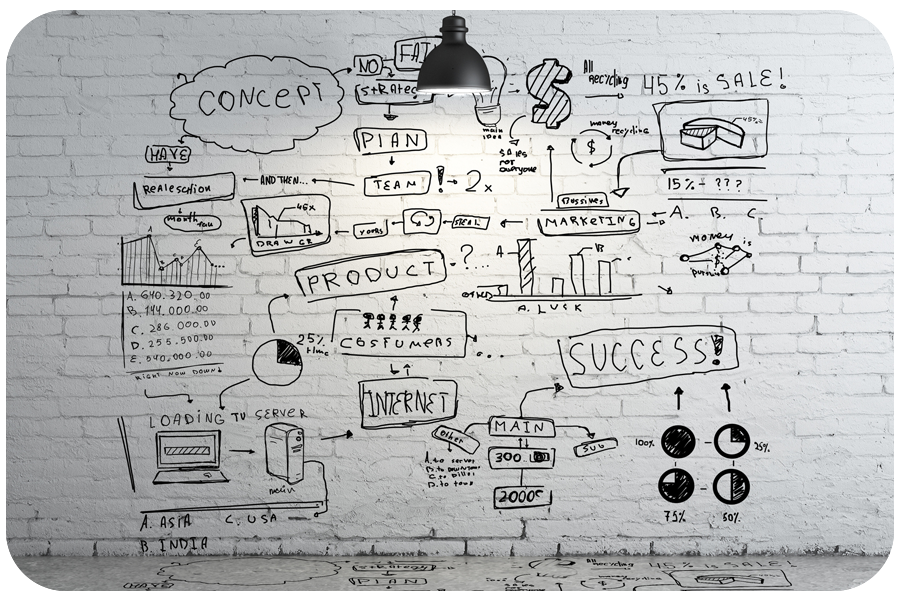 NO
CONCEPT
main
idea
All
Recycling
45% is SALE!
money
recycling
$
45%
SALES
not
everyone
PLAN
HAVE
Realeschion
AND THEN...
TEAM ! 2x
15% - ???
A. B. C.
MARKETING
month
45x
YOORS
money is
PRODUCT - ? ...
A
A. LUCK
A. 640.320.00
B. 144.000.00
C. 286.000.00
D. 255.500.00
E. 540.000.00
RIGHT NOW DOWN!
25%
time
COSTUMERS
...
SUCCESS!
INTERNET
LOADING TV SERVER
MAIN
Other
SUB
300.
2000
A. to server
100%
25%
75%
50%
main
A. ASIA C. USA
B. INDIA